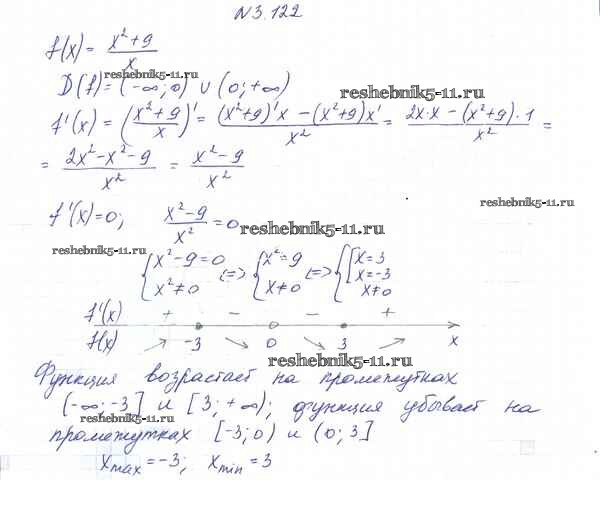 N 3.122
f(x) = (x² + 9)/x
reshebnik5-11.ru
D(f) = (-∞; 0) ∪ (0; +∞)
reshebnik5-11.ru
f'(x) = ((x²+9)/x)' = ((x²+9)'x - (x²+9)x')/x² = (2x·x - (x²+9)·1)/x² =
= (2x² - x² - 9)/x² = (x² - 9)/x²
reshebnik5-11.ru
f'(x) = 0; (x² - 9)/x² = 0
reshebnik5-11.ru
reshebnik5-11.ru
{x² - 9 = 0, x² ≠ 0 <=> {x² = 9, x ≠ 0 <=> {[x = 3, x = -3, x ≠ 0
f'(x) + - - +
f(x) ↗ -3 ↘ 0 ↘ 3 ↗ x
reshebnik5-11.ru
Функция возрастает на промежутках
(-∞; -3] и [3; +∞); функция убывает на
reshebnik5-11.ru
промежутках [-3; 0) и (0; 3]
x max = -3; x min = 3